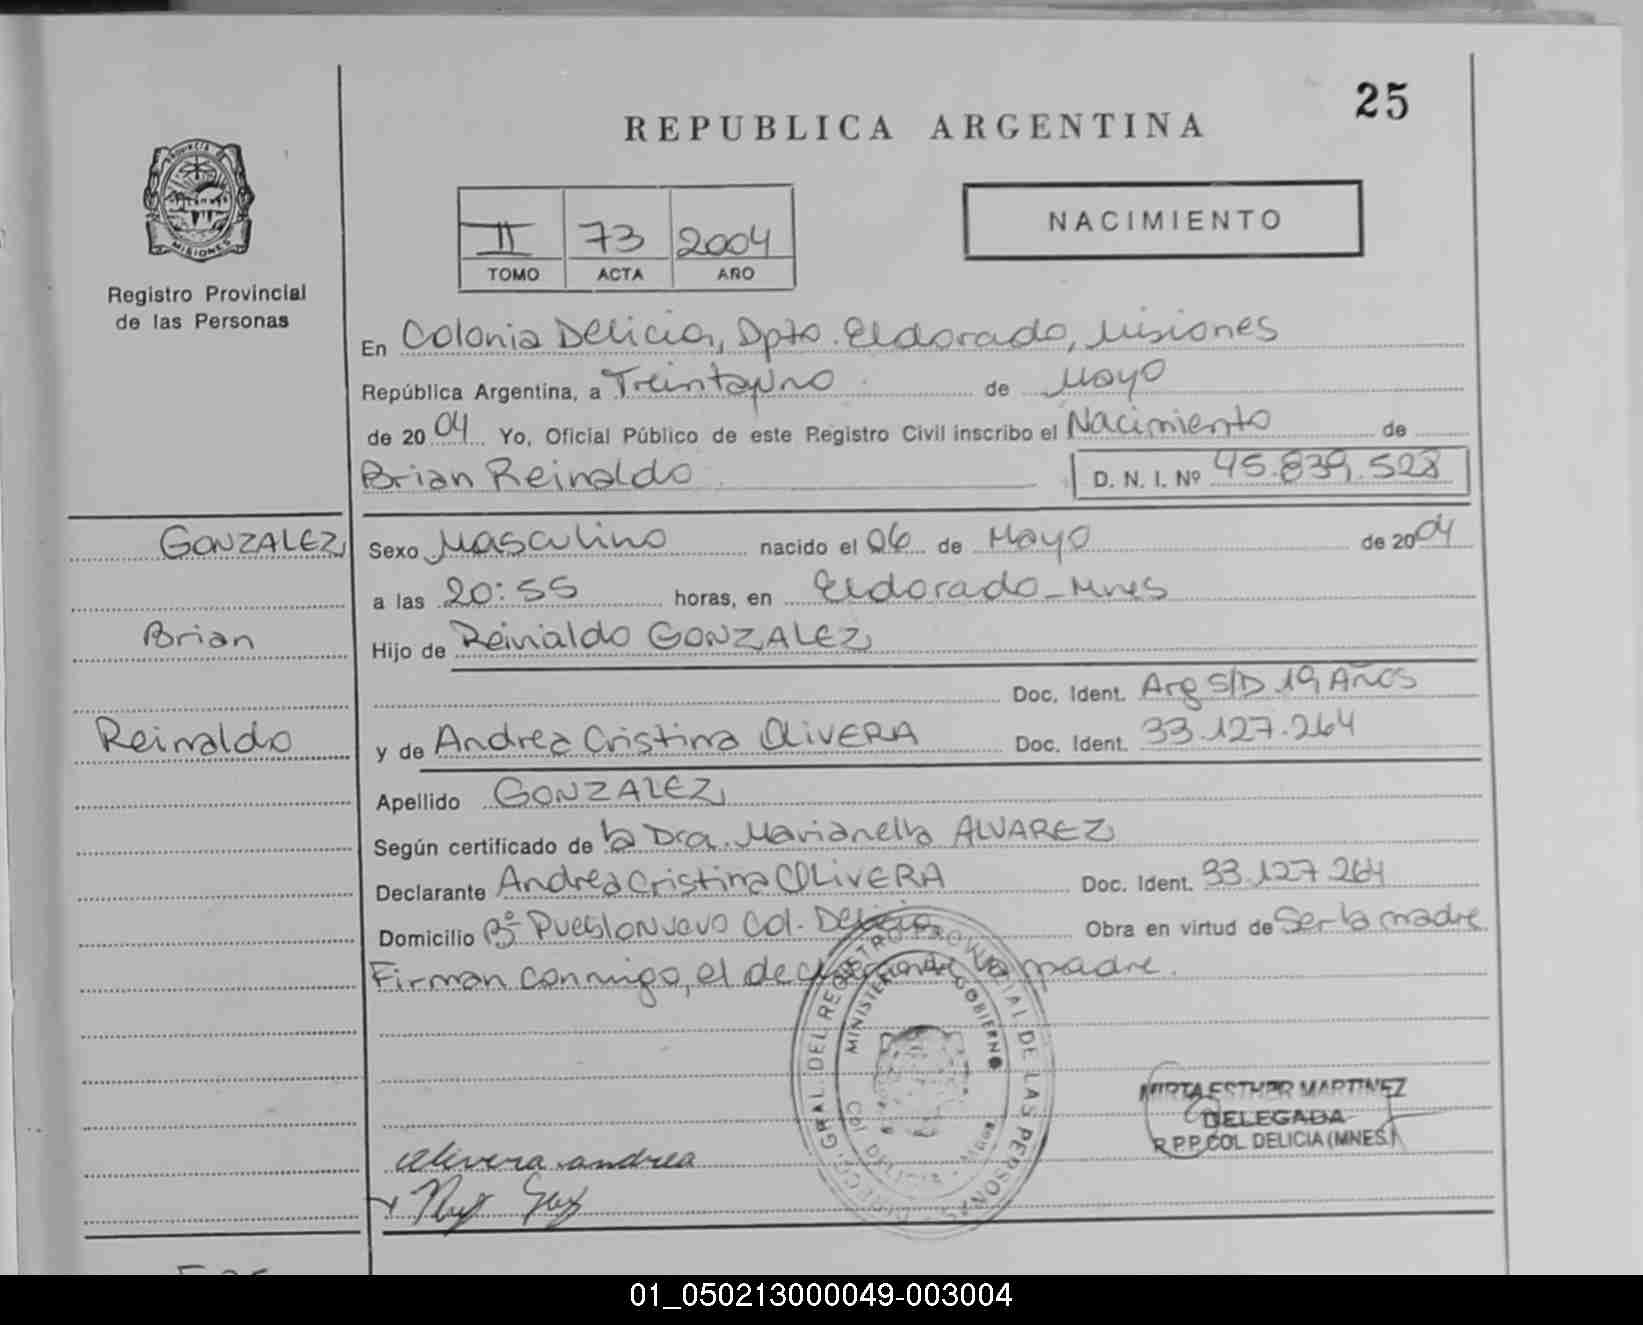 25
REPUBLICA ARGENTINA
PROVINCIA DE
MISIONES
Registro Provincial
de las Personas
II 73 2004
TOMO ACTA AÑO
NACIMIENTO
En Colonia Delicia, Dpto. Eldorado, Misiones
República Argentina, a Treintayuno de Mayo
de 2004 Yo, Oficial Público de este Registro Civil inscribo el Nacimiento de
Brian Reinaldo D. N. I. Nº 45.839.528
GONZALEZ Sexo Masculino nacido el 06 de Mayo de 2004
a las 20:55 horas, en Eldorado - Mnes
Brian Hijo de Reinaldo GONZALEZ
Doc. Ident. Arg S/D 19 Años
Reinaldo y de Andrea Cristina OLIVERA Doc. Ident. 33.127.264
Apellido GONZALEZ
Según certificado de la Dra. Marianella ALVAREZ
Declarante Andrea Cristina OLIVERA Doc. Ident. 33.127.264
Domicilio Bº Pueblo Nuevo Col. Delicia Obra en virtud de Ser la madre
Firman conmigo, el declarante y la madre.
DIRECC. GRAL. DEL REGISTRO PROVINCIAL DE LAS PERSONAS
MINISTERIO DE GOBIERNO
COL DELICIA - Mnes
MIRTA ESTHER MARTINEZ
DELEGADA
R.P.P. COL DELICIA (MNES)
Olivera andrea
01_050213000049-003004